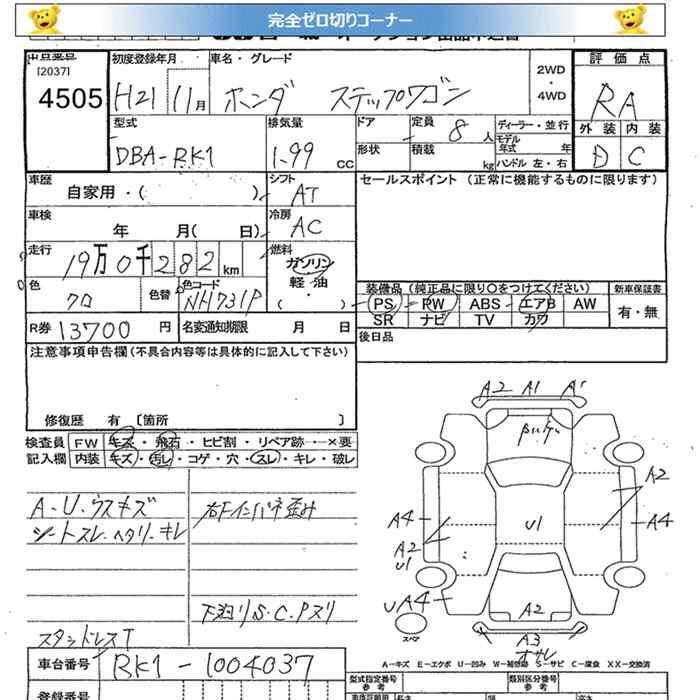 完全ゼロ切りコーナー
出品番号 初度登録年月 車名・グレード 2WD 評価点
[2037] ・
4505 H21 11月 ホンダ ステップワゴン 4WD RA
型式 排気量 ドア 定員 8人 ディーラー・並行 外装 内装
DBA-RK1 1.99 CC 形状 積載 kg モデル年式 年 D C
ハンドル 左・右
車歴 シフト セールスポイント(正常に機能するものに限ります)
自家用・( ) AT
車検 冷房
年 月( 日) AC
走行 燃料
19万0千282km ガソリン
色 色替 色コード 軽油 装備品(純正品に限り○をつけてください) 新車保証書
クロ NH731P ( ・ ) PS PW ABS エアB AW 有・無
SR ナビ TV カワ
R券 13700 円 名変通知期限 月 日 後日品
注意事項申告欄(不具合内容等は具体的に記入して下さい)
修復歴 有 [箇所 ]
検査員 FW キズ・飛石・ヒビ割・リペア跡・×要
記入欄 内装 キズ・汚レ・コゲ・穴・スレ・キレ・破レ
A・U・ウスキズ 右Fインパネ歪み
シートスレ・ヘタリ・キレ
下廻りS.C.Pスリ
スタッドレスT
A2 A1 A1
A2
A4 U1 A4
A2
U1
UA4 A2
スペア A3
オサレ
A-キズ E-エクボ U-凹み W-補修跡 S-サビ C-腐食 XX-交換済
車台番号 RK1-1004037 型式指定番号 類別区分番号
参考 参考
登録番号 車体証明用 長さ 幅 高さ